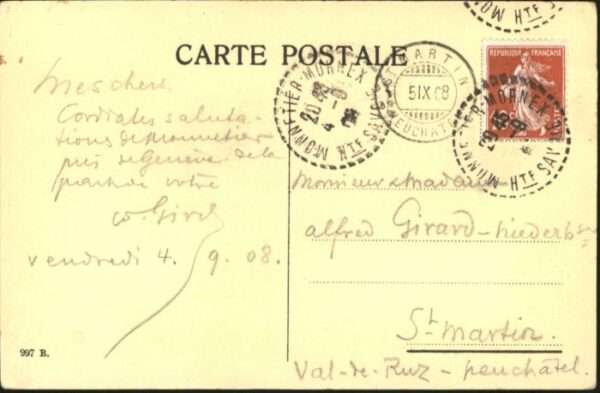 CARTE POSTALE
MONNETIER-MORNEX
20
4 -9 08
HTE SAVOIE
ST MARTIN
5 IX 08
(NEUCHÂTEL)
REPUBLIQUE FRANÇAISE
MONNETIER-MORNEX
HTE SAVOIE
HTE SAV
Mes chers
Cordiales saluta-
tions de Monnetier
près de Genève de la
part de votre
vendredi 4. 9. 08.
Monsieur & Madame
Alfred Girard-Niederh
St Martin.
Val-de-Ruz - Neuchâtel.
997 B.